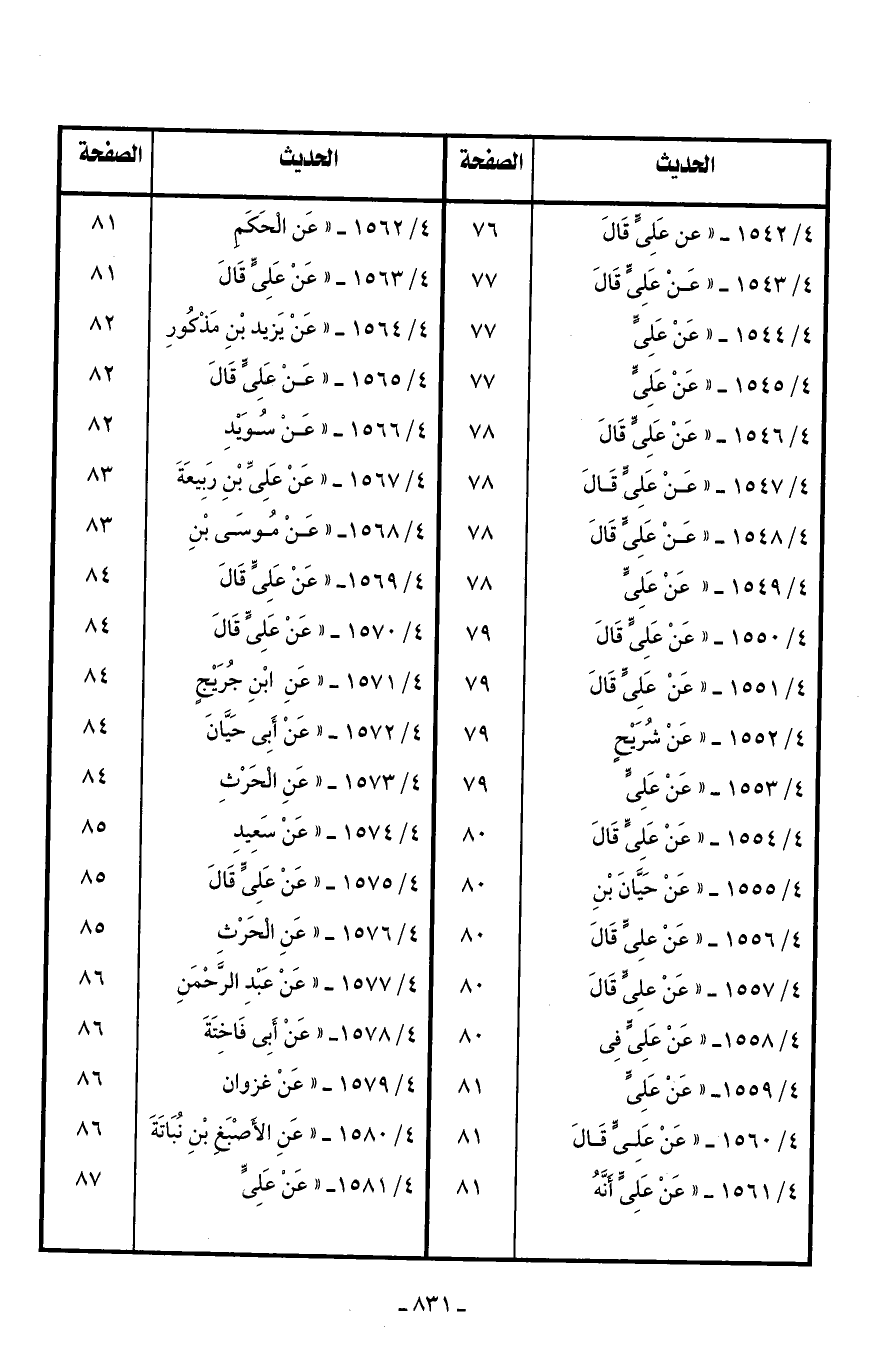 الحديث الصفحة الحديث الصفحة
٤/ ١٥٤٢ ـ « عن عَلِىٍّ قَالَ ٧٦
٤/ ١٥٤٣ ـ « عَـنْ عَلِىٍّ قَالَ ٧٧
٤/ ١٥٤٤ ـ « عَنْ عَلِىٍّ ٧٧
٤/ ١٥٤٥ ـ « عَنْ عَلِىٍّ ٧٧
٤/ ١٥٤٦ ـ « عَنْ عَلِىٍّ قَالَ ٧٨
٤/ ١٥٤٧ ـ « عَـنْ عَلِىٍّ قَـالَ ٧٨
٤/ ١٥٤٨ ـ « عَـنْ عَلِىٍّ قَالَ ٧٨
٤/ ١٥٤٩ ـ « عَنْ عَلِىٍّ ٧٨
٤/ ١٥٥٠ ـ « عَنْ عَلِىٍّ قَالَ ٧٩
٤/ ١٥٥١ ـ « عَنْ عَلِىٍّ قَالَ ٧٩
٤/ ١٥٥٢ ـ « عَنْ شُرَيْحٍ ٧٩
٤/ ١٥٥٣ ـ « عَنْ عَلِىٍّ ٧٩
٤/ ١٥٥٤ ـ « عَنْ عَلِىٍّ قَالَ ٨٠
٤/ ١٥٥٥ ـ « عَنْ حَيَّانَ بْنِ ٨٠
٤/ ١٥٥٦ ـ « عَنْ علِىٍّ قَالَ ٨٠
٤/ ١٥٥٧ ـ « عَنْ علِىٍّ قَالَ ٨٠
٤/ ١٥٥٨ـ « عَنْ عَلِىٍّ فِى ٨٠
٤/ ١٥٥٩ـ « عَنْ عَلِىٍّ ٨١
٤/ ١٥٦٠ ـ « عَنْ عَلِـىٍّ قَـالَ ٨١
٤/ ١٥٦١ ـ « عَنْ عَلِىٍّ أَنَّهُ ٨١
٤/ ١٥٦٢ ـ « عَنِ الْحَكَمِ ٨١
٤/ ١٥٦٣ ـ « عَنْ عَلِىٍّ قَالَ ٨١
٤/ ١٥٦٤ ـ « عَنْ يَزِيد بْنِ مَذْكُورِ ٨٢
٤/ ١٥٦٥ ـ « عَـنْ عَلِىٍّ قَالَ ٨٢
٤/ ١٥٦٦ ـ « عَـنْ سُـوَيْدِ ٨٢
٤/ ١٥٦٧ ـ « عَنْ عَلِىِّ بْنِ رَبِيعَةَ ٨٣
٤/ ١٥٦٨ـ « عَـنْ مُـوسَـى بْنِ ٨٣
٤/ ١٥٦٩ـ « عَنْ عَلِىٍّ قَالَ ٨٤
٤/ ١٥٧٠ ـ « عَنْ عَلِىٍّ قَالَ ٨٤
٤/ ١٥٧١ ـ « عَنِ ابْنِ جُرَيْجٍ ٨٤
٤/ ١٥٧٢ ـ « عَنْ أَبِى حَيَّانَ ٨٤
٤/ ١٥٧٣ ـ « عَنِ الْحَرْثِ ٨٤
٤/ ١٥٧٤ ـ « عَنْ سَعِيدِ ٨٥
٤/ ١٥٧٥ ـ « عَنْ عَلِىٍّ قَالَ ٨٥
٤/ ١٥٧٦ ـ « عَنِ الْحَرْثِ ٨٥
٤/ ١٥٧٧ ـ « عَنْ عَبْدِ الرَّحْمَنِ ٨٦
٤/ ١٥٧٨ـ « عَنْ أَبِى فَاخِتَةَ ٨٦
٤/ ١٥٧٩ ـ « عَنْ غزوان ٨٦
٤/ ١٥٨٠ ـ « عَنِ الأَصْبَغِ بْنِ نُبَاتَةَ ٨٦
٤/ ١٥٨١ـ « عَنْ عَلِىٍّ ٨٧
ـ ٨٣١ ـ